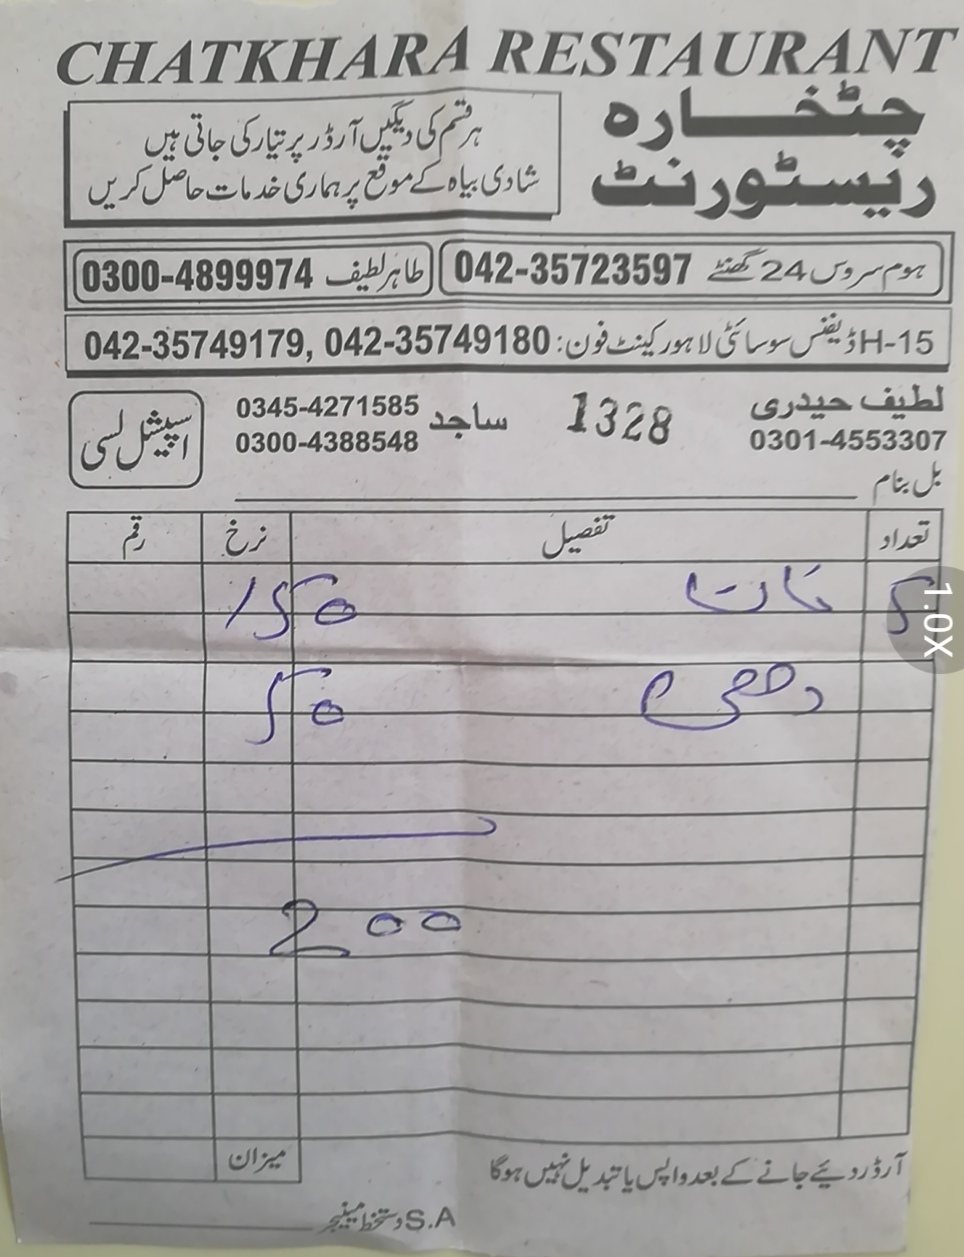 CHATKHARA RESTAURANT
چٹخارہ
ریسٹورنٹ
ہر قسم کی دیگیں آرڈر پر تیار کی جاتی ہیں
شادی بیاہ کے موقع پر ہماری خدمات حاصل کریں
ہوم سروس 24 گھنٹے 042-35723597
طاہر لطیف 0300-4899974
H-15 ڈیفنس سوسائٹی لاہور کینٹ فون: 042-35749180 ,042-35749179
لطیف حیدری
0301-4553307
1328
ساجد
0345-4271585
0300-4388548
اسپیشل لسی
بل بنام
تعداد تفصیل نرخ رقم
5 نان 150
دھی 50
200
میزان
آرڈر دیئے جانے کے بعد واپس یا تبدیل نہیں ہوگا
S.A دستخط مینیجر
1.0X